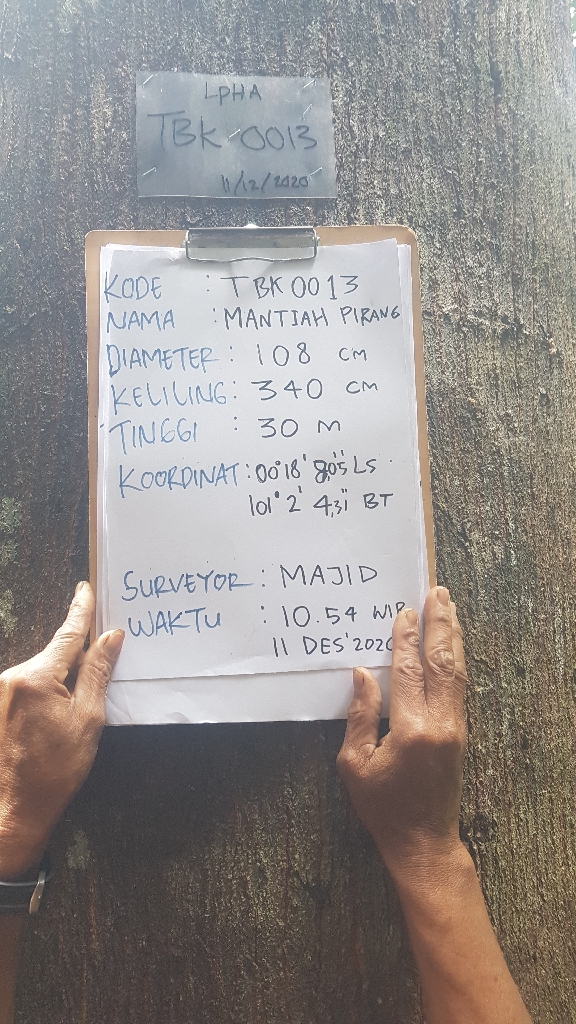 LPHA
TBK-0013
11/12/2020
KODE : TBK0013
NAMA : MANTIAH PIRANG
DIAMETER : 108 CM
KELILING : 340 CM
TINGGI : 30 M
KOORDINAT : 00°18' 8,05" LS
101° 2' 4,31" BT
SURVEYOR : MAJID
WAKTU : 10.54 WIB
11 DES'2020